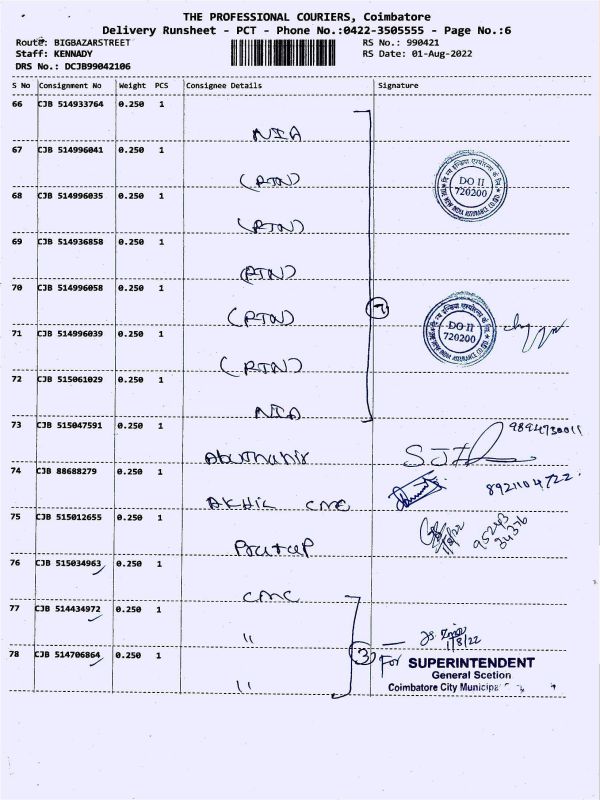 THE PROFESSIONAL COURIERS, Coimbatore
Delivery Runsheet - PCT - Phone No.:0422-3505555 - Page No.:6
Route: BIGBAZARSTREET
RS No.: 990421
Staff: KENNADY
RS Date: 01-Aug-2022
DRS No.: DCJB99042106
S No Consignment No Weight PCS Consignee Details Signature
66 CJB 514933764 0.250 1
NIA
67 CJB 514996041 0.250 1
(RTN)
DO II
720200
68 CJB 514996035 0.250 1
(RTN)
69 CJB 514936858 0.250 1
(RTN)
70 CJB 514996058 0.250 1
(RTN)
7
DO II
720200
71 CJB 514996039 0.250 1
(RTN)
72 CJB 515061029 0.250 1
NIA
73 CJB 515047591 0.250 1
9894730011
Abuthahir
74 CJB 88688279 0.250 1
8921104722
AKHIL CMC
75 CJB 515012655 0.250 1
1/8/22
95243
34376
Pratap
76 CJB 515034963 0.250 1
CMC
77 CJB 514434972 0.250 1
"
1/8/22
78 CJB 514706864 0.250 1
3
For SUPERINTENDENT
General Scetion
Coimbatore City Municipa
"